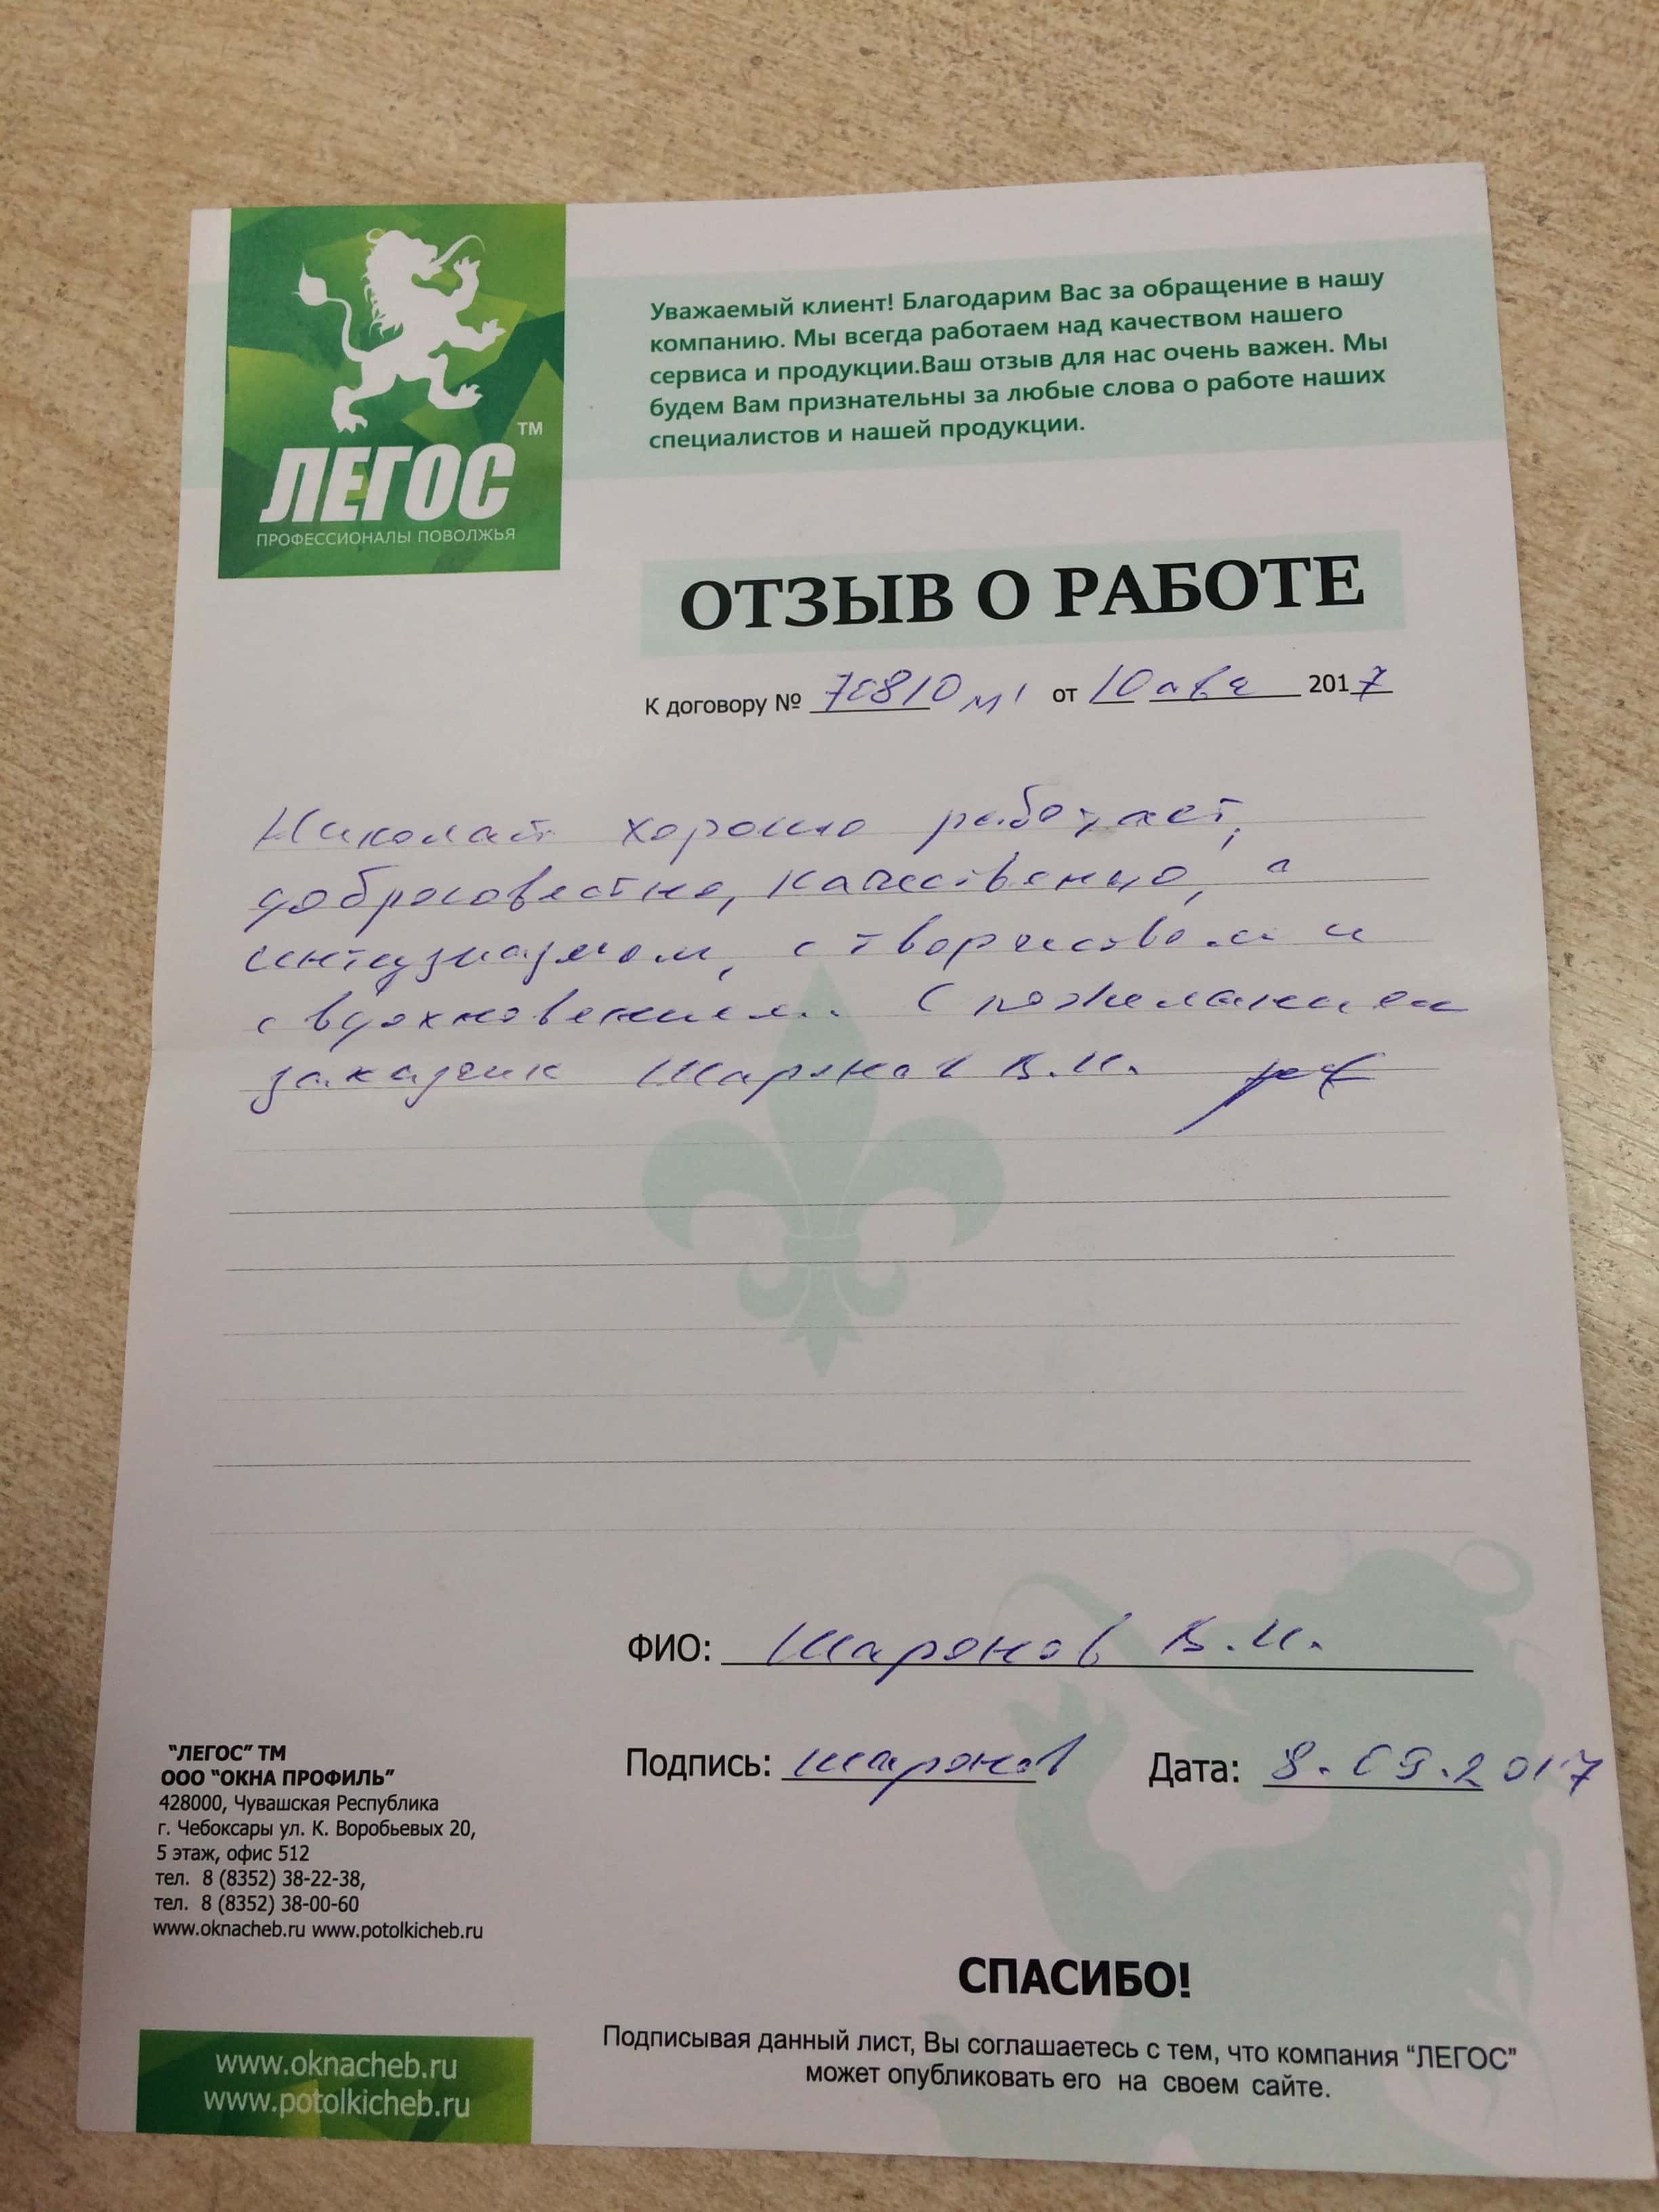 ЛЕГОС
ТМ
ПРОФЕССИОНАЛЫ ПОВОЛЖЬЯ
Уважаемый клиент! Благодарим Вас за обращение в нашу
компанию. Мы всегда работаем над качеством нашего
сервиса и продукции.Ваш отзыв для нас очень важен. Мы
будем Вам признательны за любые слова о работе наших
специалистов и нашей продукции.
ОТЗЫВ О РАБОТЕ
К договору № 70810 м1 от 10 авг 2017
Николай хорошо работает,
добросовестно, качественно, с
интузиазмом, с творчеством и
с вдохновением. С пожеланием
заказчик Шаронов В.И.
ФИО: Шаронов В.И.
Подпись: Шаронов Дата: 8.09.2017
"ЛЕГОС" ТМ
ООО "ОКНА ПРОФИЛЬ"
428000, Чувашская Республика
г. Чебоксары ул. К. Воробьевых 20,
5 этаж, офис 512
тел. 8 (8352) 38-22-38,
тел. 8 (8352) 38-00-60
www.oknacheb.ru www.potolkicheb.ru
СПАСИБО!
Подписывая данный лист, Вы соглашаетесь с тем, что компания "ЛЕГОС"
может опубликовать его на своем сайте.
www.oknacheb.ru
www.potolkicheb.ru